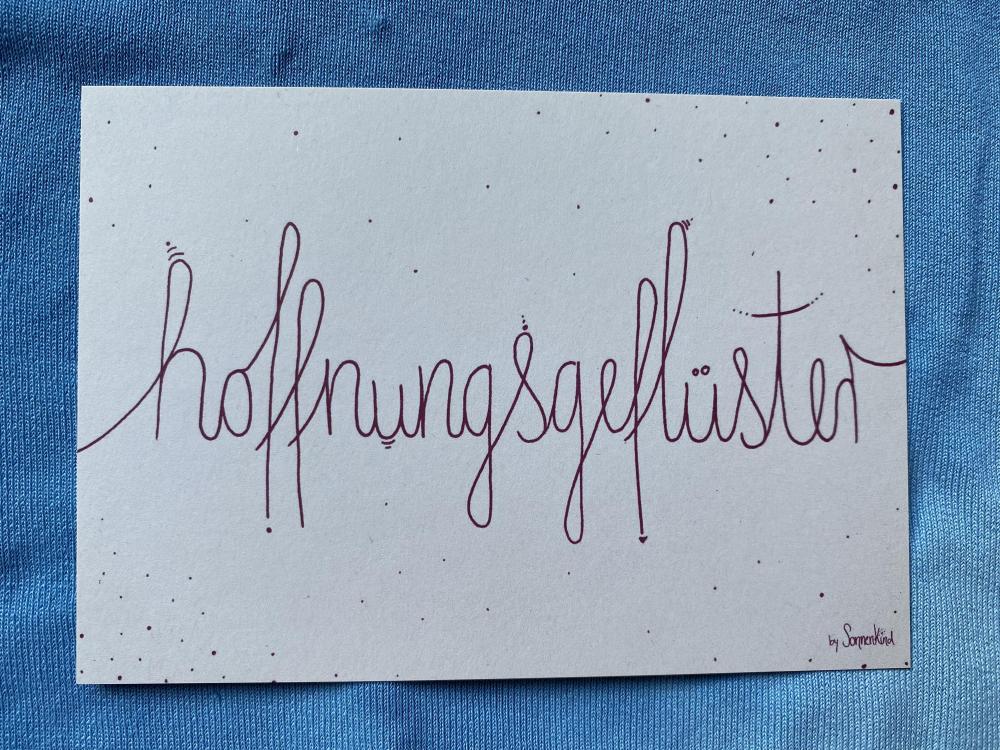 hoffnungsgeflüster
by Sonnenkind